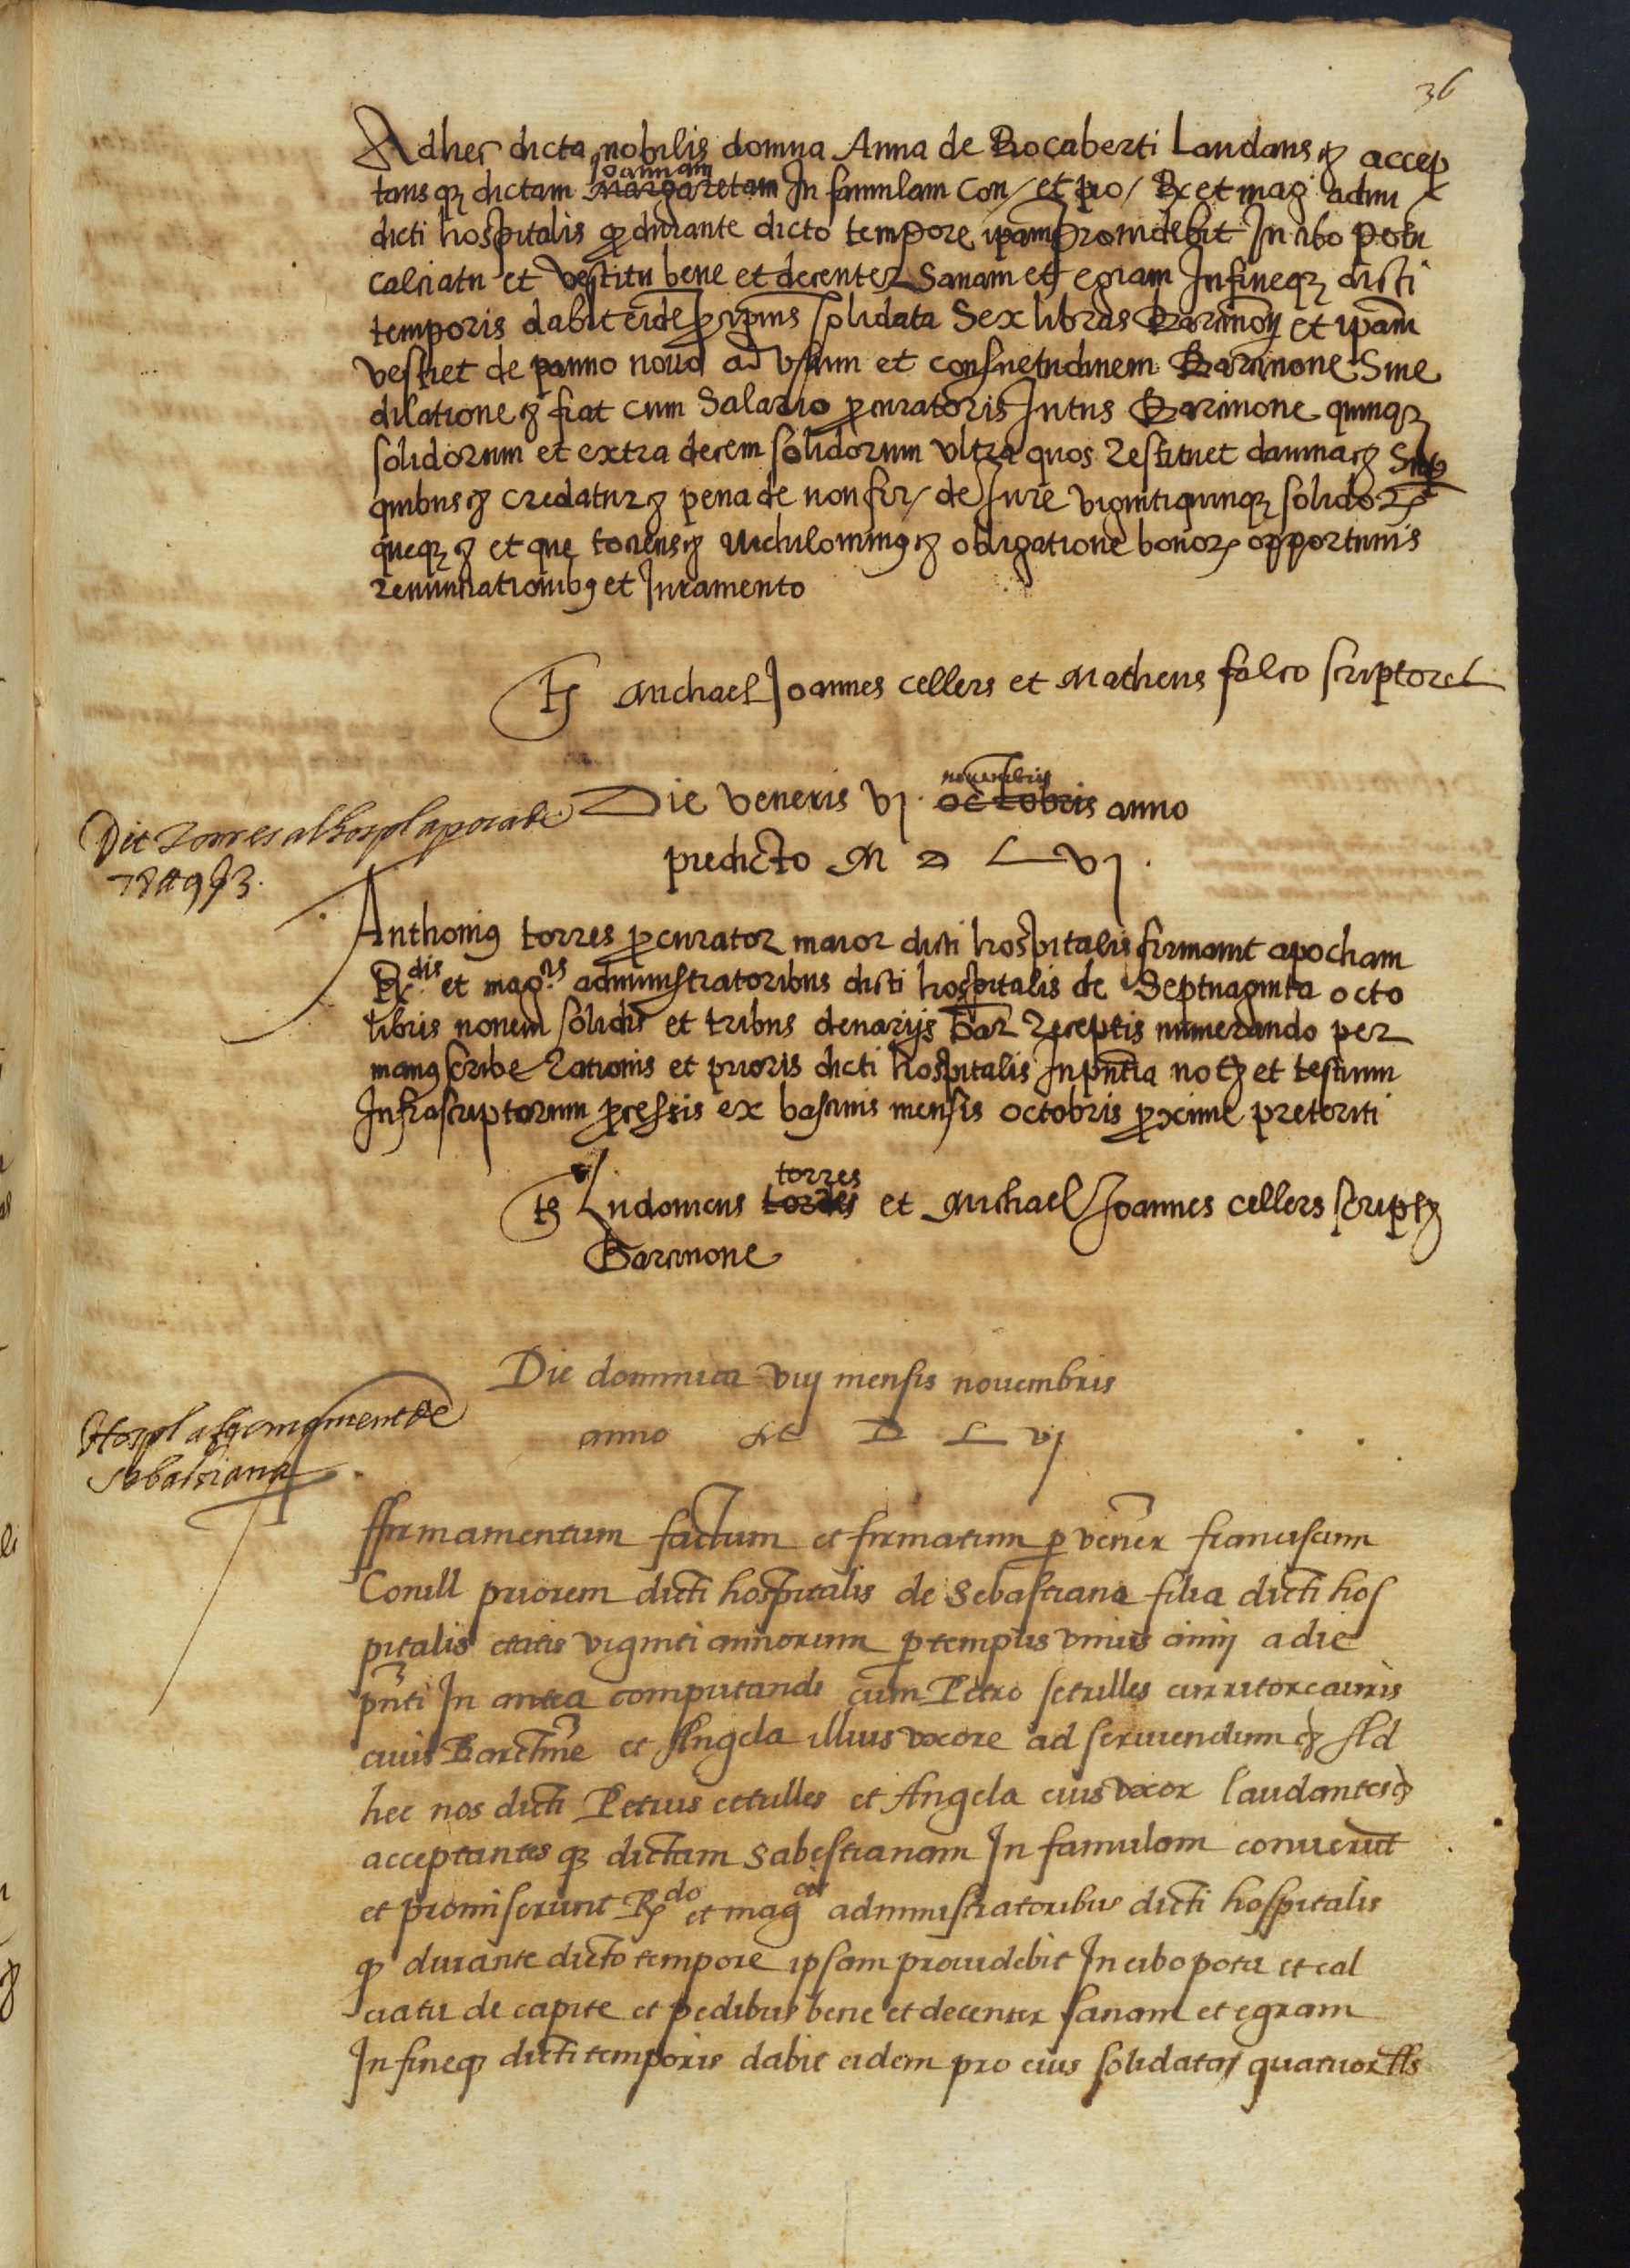 36
Adhec dicta nobilis domna Anna de Rocaberti Laudans etc accep
Joannam
tansqz dictam Margaretam In famulam con / et pro / Rx et mag admi
dicti hospitalis q durante dicto tempore ipam Prouidebit In cibo potu
calciatu et vestitu bene et decenter Sanam et egram Infineqz dicti
temporis dabit eide p ipius solidata Sex libras Barcinon et ipam
vestiet de panno nouo ad vsum et consuetudinem Barcinone Sine
dilatione etc fiat cum Salario pcuratoris Intus Barcinone quinqz
solidorum et extra decem solidorum vltra quos Restituet damna etc Sup
quibus etc credatur etc pena de non fir / de Jure vigintiquinqz solidor
queqz etc et que tociens etc Nichilominus etc obligatione bonor opportunis
renunciationibus et Juramento
ts Michael Joannes cellers et Matheus falco scriptores
nouembris
Die veneris vj octobris anno
predicto M D L vj.
Dit Torres al hospl apoca de
78 ₶ 9 ß 3.
Anthonius torres pcurator maior dicti hospitalis firmauit apocham
Rx dis et mag cis administratoribus dicti hospitalis de Septuaginta octo
libris nouem solidis et tribus denarijs Bar Receptis numerando per
manus scribe Rationis et prioris dicti hospitalis Inpntia not et testium
Infrascriptorum pcessis ex bascinis mensis octobris pxime preteriti
torres
ts Ludouicus torres et Michael Joannes cellers script
Barcinone
Die dominica viij mensis nouembris
anno M D L vj
Hospl afermament de
Sabastiana
ffirmamentum factum et firmatum p vener franciscum
Conill priorem dicti hospitalis de Sebastiana filia dicti hos
pitalis etatis viginti annorum p tempus vnius annj a die
pnti In antea computandi cum Petro setulles curritore auris
ciuis Barcine et Angela illius vxore ad seruiendum etc Ad
hec nos dicti Petrus cetulles et Angela eius vxor laudantes etc
acceptantesqz dictam Sabestianam In famulam conuerut
et promiserunt Rx do et mag cis administratoribus dicti hospitalis
q durante dicto tempore ipsam prouidebit In cibo potu et cal
ciatu de capite et pedibus bene et decenter sanam et egram
In fineqz dicti temporis dabit eidem pro eius solidata quatuor ₶s